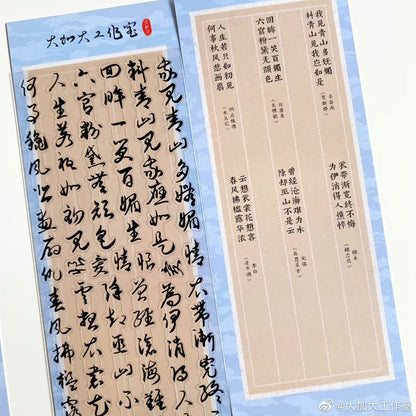 大加大工作室
我见青山多妩媚
衣带渐宽终
料青山见我应如是
为伊消得人
回眸一笑百媚生
曾经沧海难
六宫粉黛无颜色
除却巫山不
人生若只如初见
云想衣裳花
何事秋风悲画扇
春风拂槛露
我见青山多妩媚
料青山见我应如是
辛弃疾
《贺新郎》
回眸一笑百媚生
六宫粉黛无颜色
白居易
《长恨歌》
人生若只如初见
何事秋风悲画扇
纳兰性德
《木兰花》
衣带渐宽终不悔
为伊消得人憔悴
柳永
《蝶恋花》
曾经沧海难为水
除却巫山不是云
元稹
《离思五首》
云想衣裳花想容
春风拂槛露华浓
李白
《清平调》
@大加大工作室